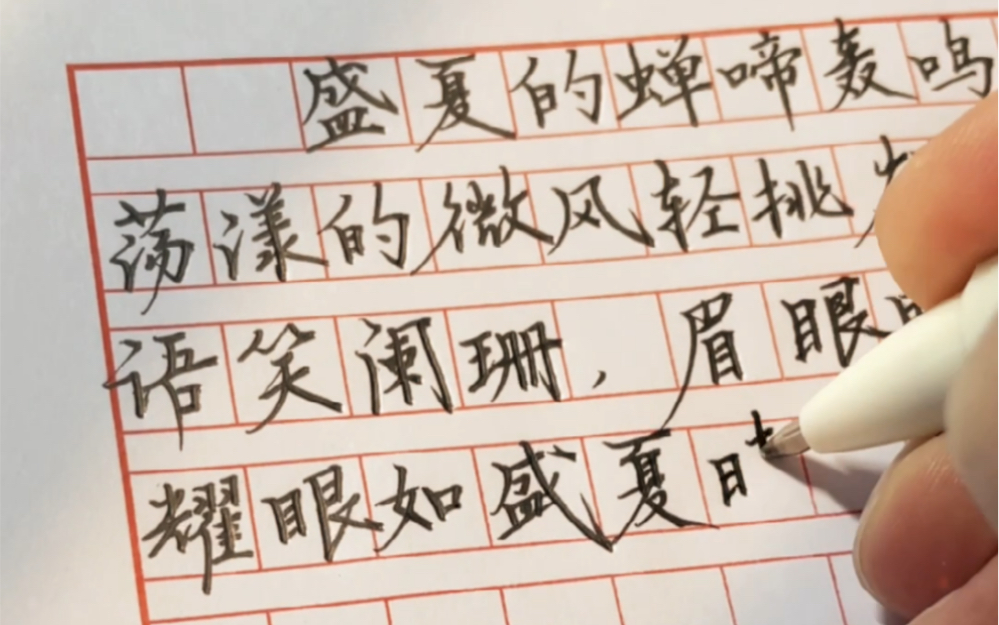 盛夏的蝉啼轰鸣
荡漾的微风轻挑
语笑阑珊，眉眼
耀眼如盛夏